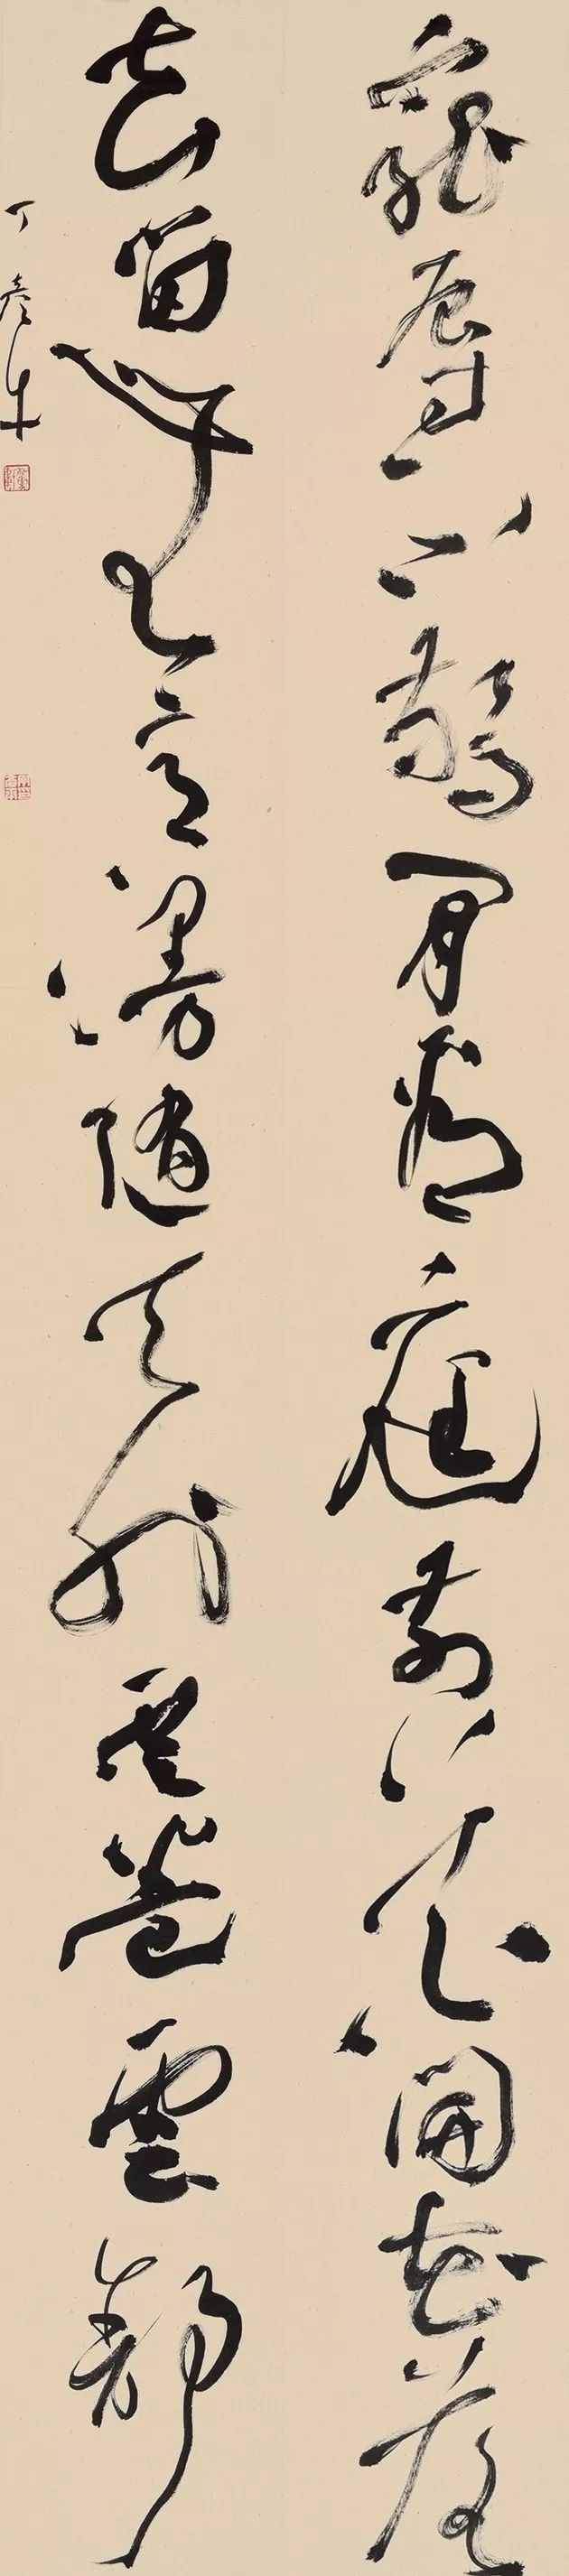 寵辱不驚閒看庭前花開花落
去留無意漫隨天外雲卷雲舒
丁